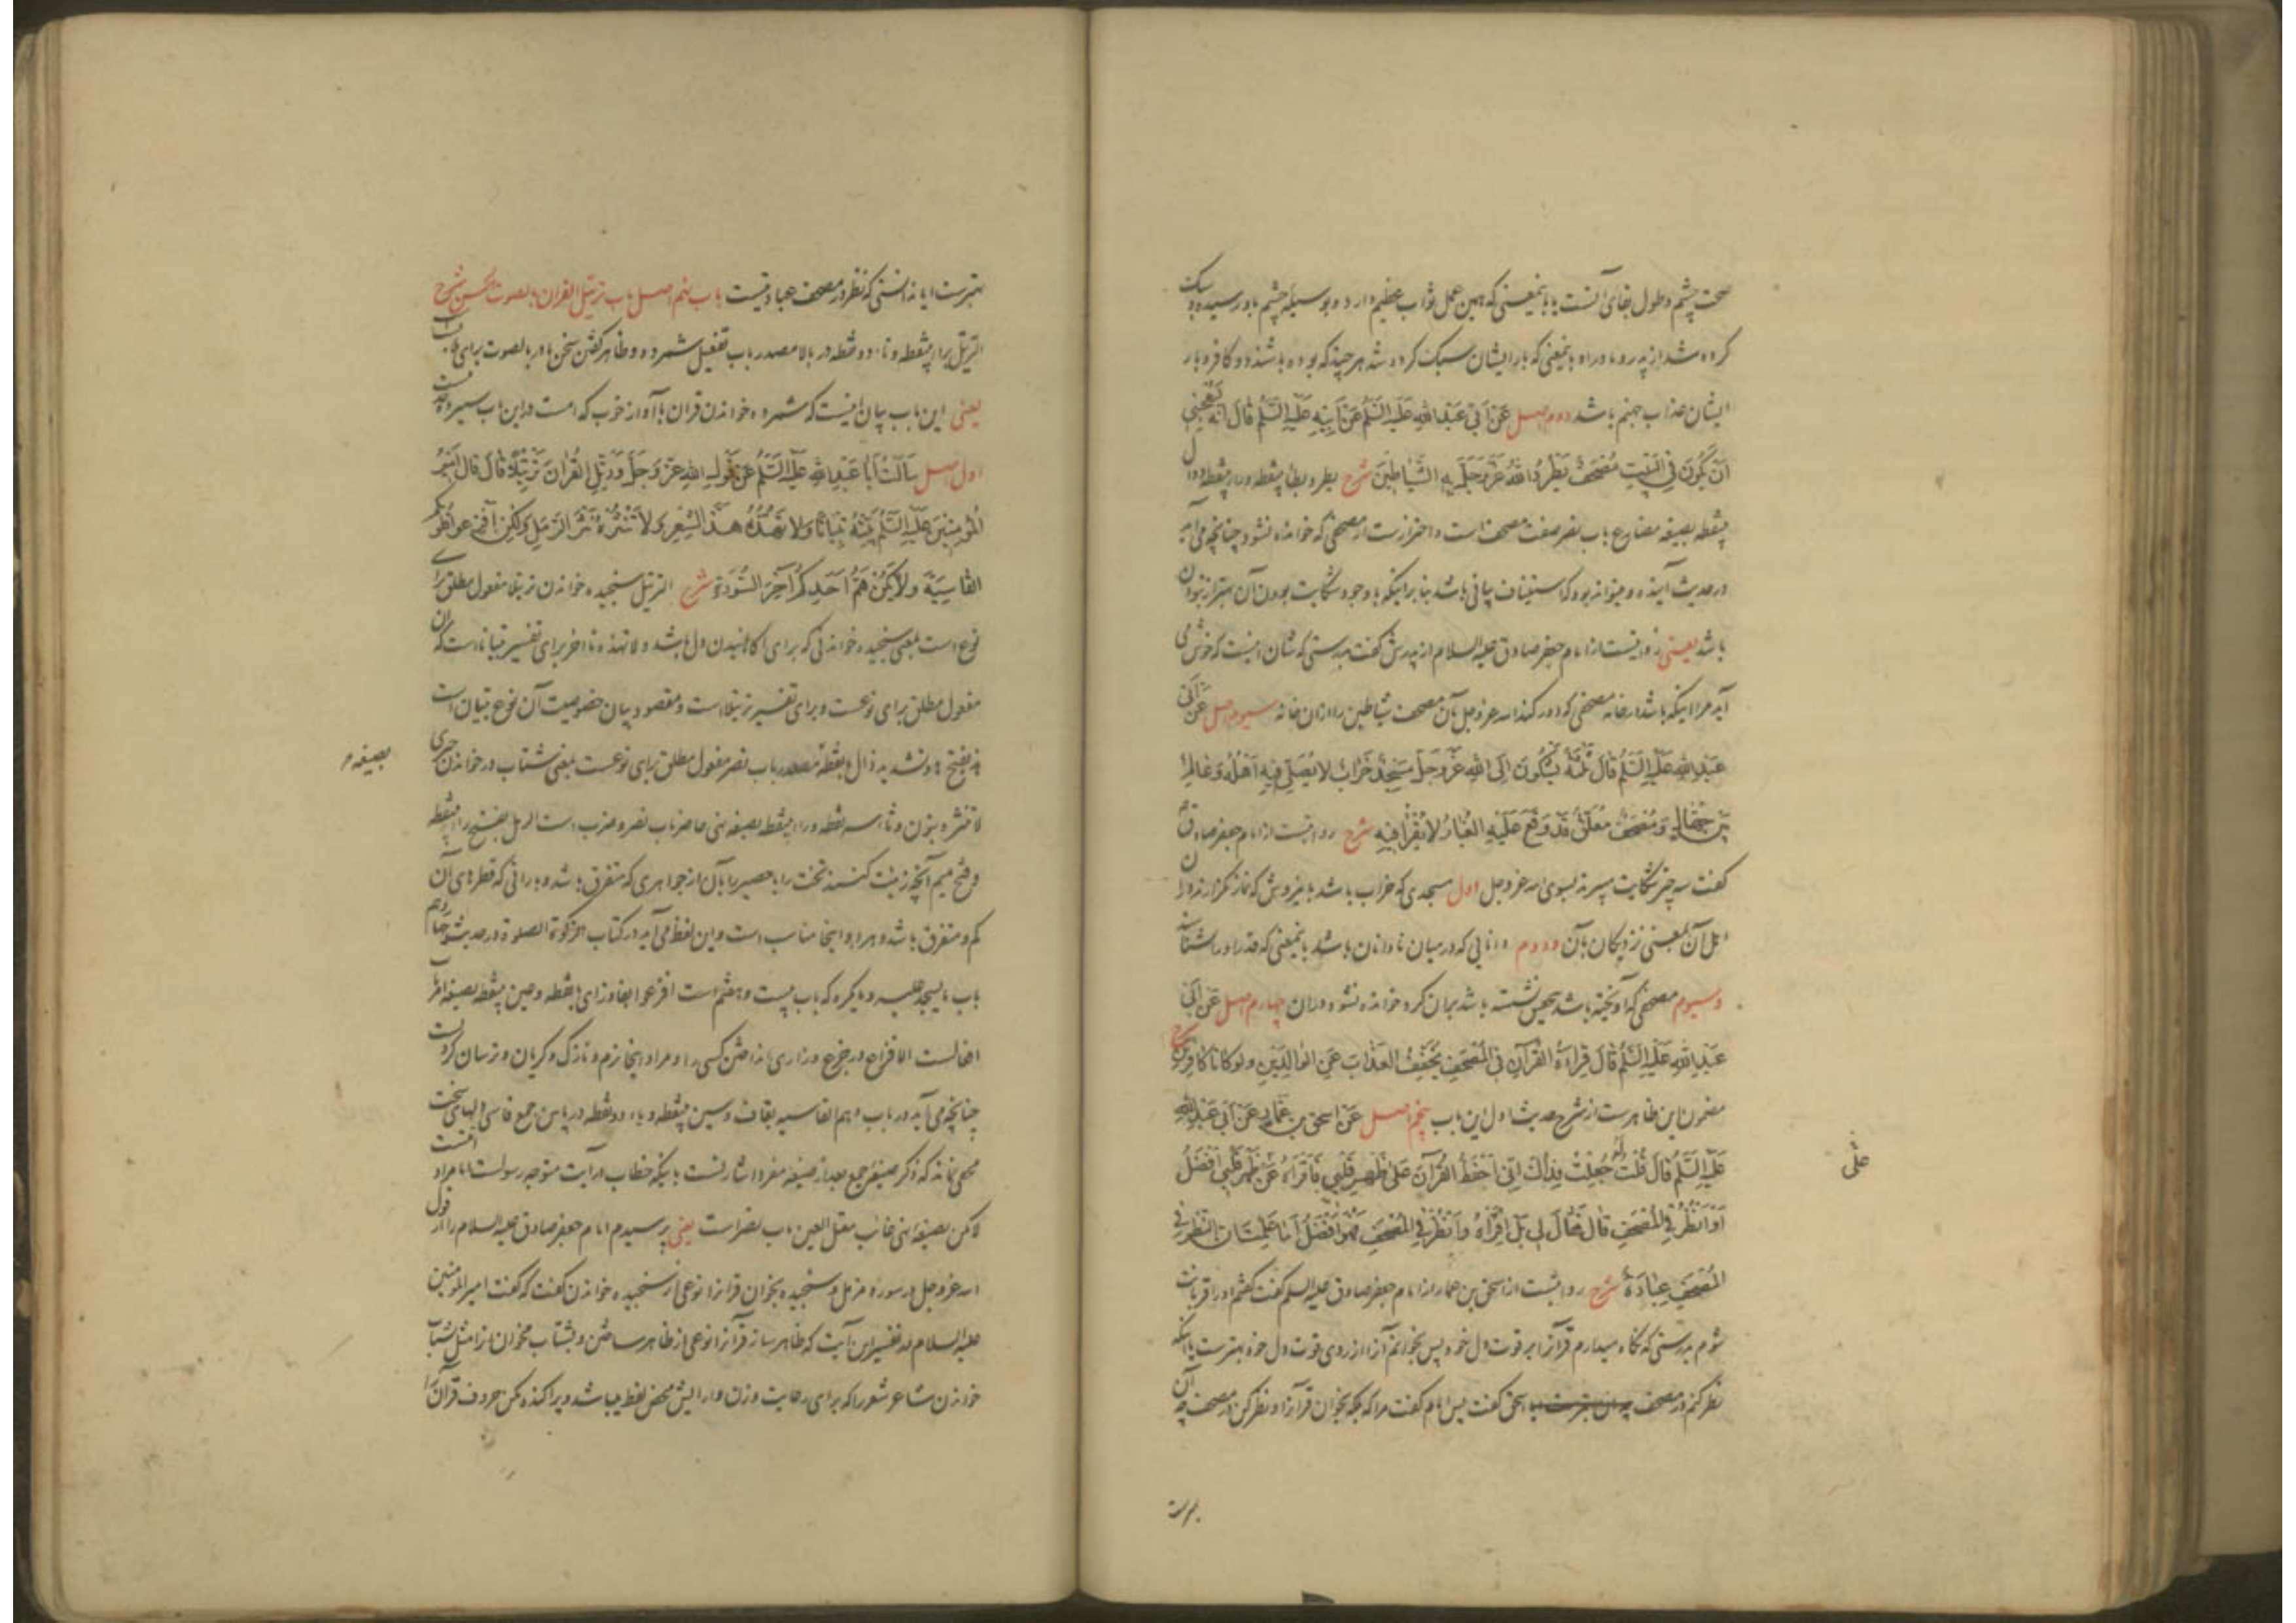 صحت چشم و طول بقای آنست یا باینمعنی که همین عمل ثواب عظیم دارد و بوسیله چشم باو رسیده و سبک
کرده شد از پدر و مادر او باینمعنی که بار ایشان سبک کرده شد هر چند که بوده باشند دو کافر و بار
ایشان عذاب جهنم باشد دوم اصل عَنْ اَبی عَبْدِ اللهِ عَلَیْهِ السَّلَمُ عَنْ اَبِیهِ عَلَیْهِ السَّلَمُ قَالَ اِنَّهُ لَیُعْجِبُنِی
اَنْ یَکُونَ فِی الْبَیْتِ مُصْحَفٌ یَطْرُدُ اللهُ عَزَّ وَجَلَّ بِهِ الشَّیَاطِینَ شرح یطرد بطای بینقطه و رای بینقطه و دال
بینقطه بصیغه مضارع باب نصر صفت مصحف است و احتراز است از مصحفی که خوانده نشود چنانچه می‌آید
در حدیث آینده و میتواند بود که استیناف بیانی باشد بنابر اینکه با وجود شکایت بودن آن بهتر از نبودن
باشد یعنی روایتست از امام جعفر صادق علیه السلام از پدرش گفت بدرستی که شان اینست که خوش می
آید مرا اینکه باشد در خانه مصحفی که دور کند الله عز وجل بآن مصحف شیاطین را از ان خانه سیوم اصل عَنْ اَبی
عَبْدِ اللهِ عَلَیْهِ السَّلَمُ قَالَ ثَلٰثَةٌ یَشْکُونَ اِلَی اللهِ عَزَّ وَجَلَّ مَسْجِدٌ خَرَابٌ لَا یُصَلِّی فِیهِ اَهْلُهُ وَعَالِمٌ
بَیْنَ جُهَّالٍ وَ مُصْحَفٌ مُعَلَّقٌ قَدْ وَقَعَ عَلَیْهِ الْغُبَارُ لَا یُقْرَأُ فِیهِ شرح روایتست از امام جعفر صادق
گفت سه چیز شکایت میبرند بسوی الله عز وجل اول مسجدی که خراب باشد باینروش که نماز نگزارند در ان
اهل آن بمعنی نزدیکان بآن و دوم دانایی که در میان نادانان باشد باینمعنی که قدر او را نشناسند
و سیوم مصحفی که آویخته باشد بتحقیق نشسته باشد بران گرد خوانده نشود دران چهارم اصل عَنْ اَبی
عَبْدِ اللهِ عَلَیْهِ السَّلَمُ قَالَ قِرَاءَةُ الْقُرْآنِ فِی الْمُصْحَفِ تُخَفِّفُ الْعَذَابَ عَنِ الْوَالِدَیْنِ وَلَوْ کَانَا کَافِرَیْنِ شرح
مضمون این ظاهر است از شرح حدیث اول این باب پنجم اصل عَنْ اسحق بن عَمَّارٍ عَنْ اَبی عَبْدِ اللهِ
عَلَیْهِ السَّلَمُ قَالَ قُلْتُ لَهُ جُعِلْتُ فِدَاکَ اِنِّی اَحْفَظُ الْقُرْآنَ عَلَی ظَهْرِ قَلْبِی فَاَقْرَاُهُ عَنْ ظَهْرِ قَلْبِی اَفْضَلُ
علی
اَوْ اَنْظُرُ فِی الْمُصْحَفِ قَالَ فَقَالَ لِی بَلِ اقْرَأْهُ وَانْظُرْ فِی الْمُصْحَفِ فَهُوَ اَفْضَلُ اَمَا عَلِمْتَ اَنَّ النَّظَرَ فِی
الْمُصْحَفِ عِبَادَةٌ شرح روایتست از اسحق بن عمار از امام جعفر صادق علیه السلم گفت گفتم او را قربانت
شوم بدرستی که نگاه میدارم قرآن را بر قوت دل خود پس بخوانم آن را از روی قوت دل خود بهتر است یا اینکه
نظر کنم در مصحف اسحق گفت پس امام گفت مرا که بلکه بخوان قرآن را و نظر کن در مصحف چه آن
بهتر است
بهتر است ایا ندانستی که نظر در مصحف عبادتست باب نهم اصل باب ترتیل القرآن بالصوت الحسن شرح
الترتیل برای بینقطه و تاء دو نقطه در بالا مصدر باب تفعیل شمرده و ظاهر گفتن سخن باء در بالصوت برای
یعنی این باب بیان اینست که شمرده خواندن قرآن با آواز خوب که است در این باب سیزده حدیث است
اول اصل سَاَلْتُ اَبَا عَبْدِ اللهِ عَلَیْهِ السَّلَمُ عَنْ قَوْلِ اللهِ عَزَّ وَجَلَّ وَرَتِّلِ الْقُرْآنَ تَرْتِیلًا قَالَ قَالَ اَمِیرُ
الْمُؤْمِنِینَ عَلَیْهِ السَّلَمُ بَیِّنْهُ تِبْیَانًا وَلَا تَهُذَّهُ هَذَّ الشِّعْرِ وَلَا تَنْثُرْهُ نَثْرَ الرَّمْلِ وَلٰکِنْ اَفْزِعُوا قُلُوبَکُمُ
الْقَاسِیَةَ وَلَا یَکُنْ هَمُّ اَحَدِکُمْ آخِرَ السُّورَةِ شرح الترتیل سنجیده خواندن ترتیلا مفعول مطلق برای
نوع است بمعنی سنجیده خواندنی که برای آگاهانیدن دل باشد و لا تهذه تا آخر برای تفسیر تبیانا است که ان
مفعول مطلق برای نوعست و برای تفسیر ترتیلا است و مقصود بیان خصوصیت آن نوع تبیان است
هذ بفتح ها و تشدید ذال بانقطه مصدر باب نصر مفعول مطلق برای نوعست بمعنی شتاب در خواندن چیزی
بصیغه
لا تنثر بنون و ثاء سه نقطه و رای بینقطه بصیغه نهی حاضر باب نصر و ضرب است الرمل بفتح راء بینقطه
و فتح میم آنچه زینت کنند تخت را یا حصیر را بآن از جواهری که متفرق باشد و بارانی که قطره‌های آن
کم و متفرق باشد و هر دو اینجا مناسب است و این لفظ می‌آید در کتاب الزکوة الصلوة در حدیث
باب ما یسجد علیه و ما یکره که باب بیست و هفتم است افزعوا بفا و زای بانقطه و عین بینقطه بصیغه امر
افعالست الافزاع در جزع و زاری انداختن کسی را و مراد اینجا نرم و نازک و گریان و ترسان کردنست
چنانچه می‌آید در باب دهم القاسیه بقاف و سین بینقطه و یاء دو نقطه در پایین جمع قاسی دلهای سخت
مخفی نماند که ذکر صیغه جمع بعد از صیغه مفرد اشارتست باینکه خطاب در آیت متوجه رسولست اما مراد امتست
لا یکن بصیغه نهی غایب معتل العین باب نصر است یعنی پرسیدم امام جعفر صادق علیه السلام را از قول
الله عز وجل در سوره مزمل و سنجیده بخوان قرآن را نوعی از سنجیده خواندن گفت که گفت امیر المومنین
علیه السلام در تفسیر این آیت که ظاهر ساز قرآن را نوعی از ظاهر ساختن و بشتاب مخوان آن را مثل شتاب
خواندن شاعر شعر را که برای رعایت وزن و آرایش محض لفظ میباشد و پراکنده مکن حروف قرآن را